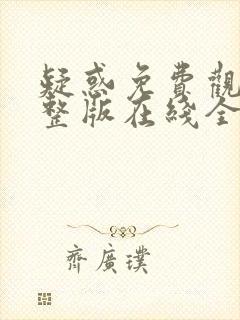 疑惑免費觀
整版在线全
齊廣璞